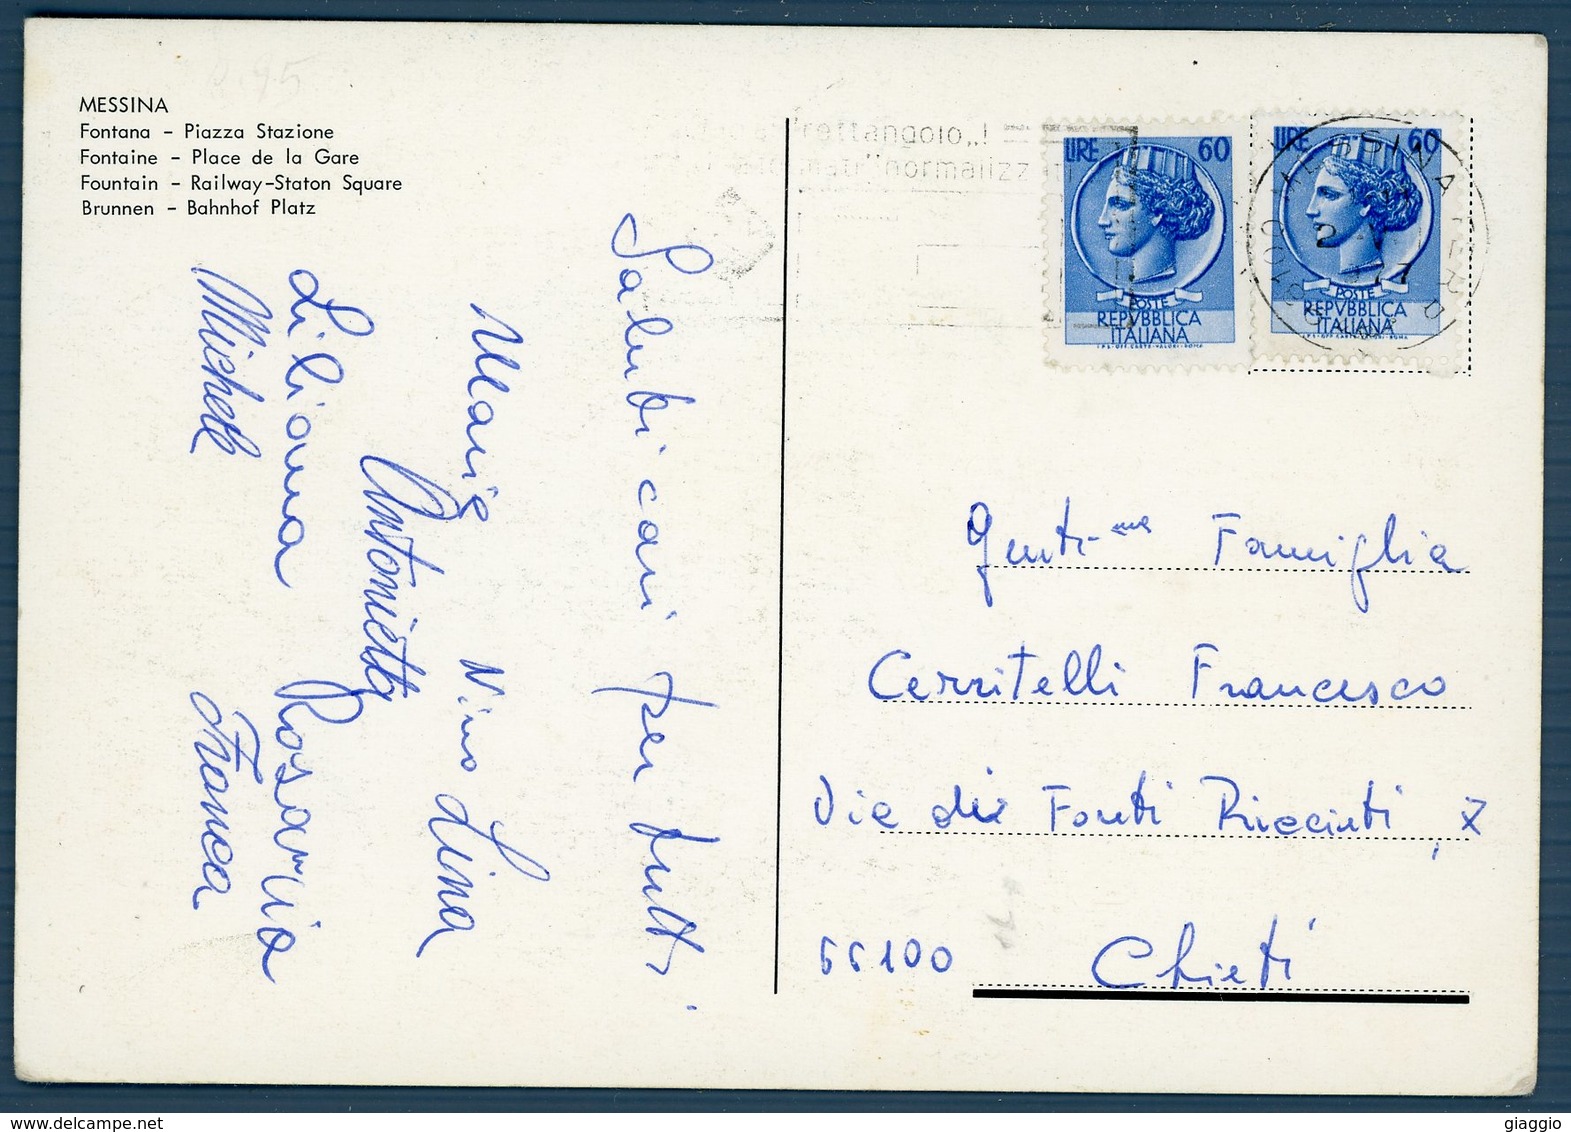 MESSINA
Fontana - Piazza Stazione
Fontaine - Place de la Gare
Fountain - Railway-Staton Square
Brunnen - Bahnhof Platz
Saluti cari per tutti
Maria Nino Lina
Antonietta
Liliana Rosaria
Michele Franca
"rettangolo„!
"normalizzati
LIRE 60
POSTE
REPVBBLICA
ITALIANA
I.P.S.-OFF. CARTE-VALORI-ROMA
LIRE 60
POSTE
REPVBBLICA
ITALIANA
I.P.S.-OFF. CARTE-VALORI-ROMA
MESSINA FERROVIA
Genti-me Famiglia
Cerritelli Francesco
Via dei Fonti Ricciuti, X
66100 Chieti
giaggio
www.delcampe.net